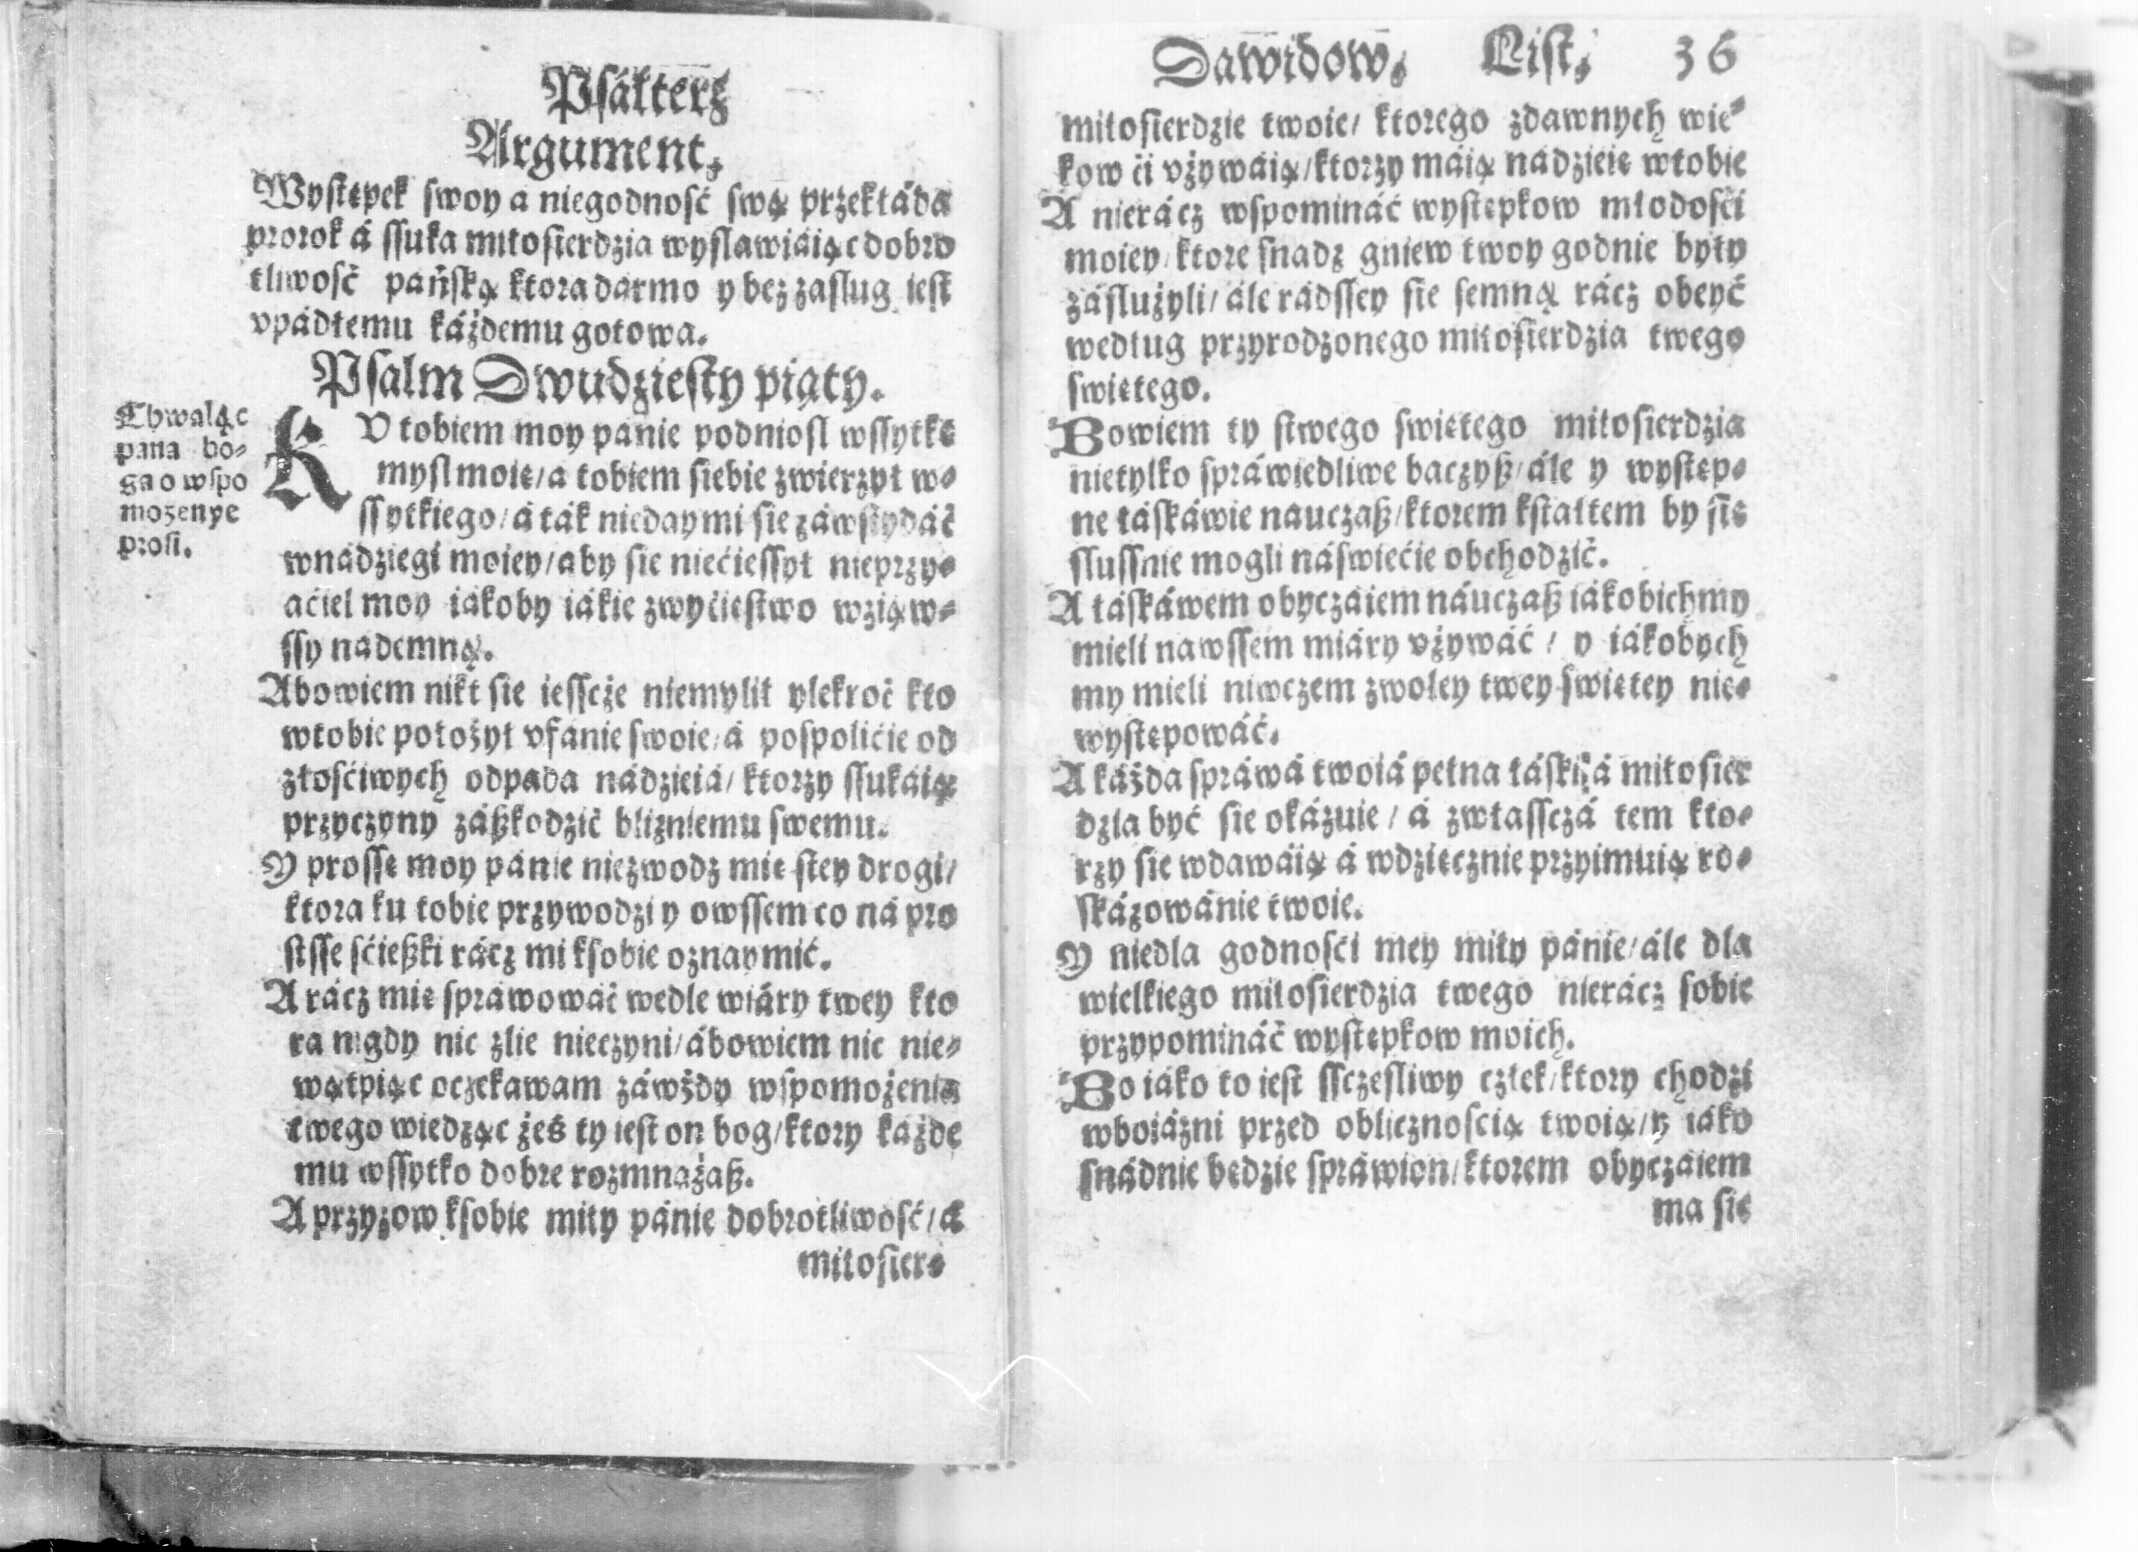 Psáłterz
Argument.
Występek swoy a niegodnosć swą przekłáda
prorok á ssuka miłosierdzia wyslawiáiąc dobro
tliwosć pańską ktora darmo y bez zaslug iest
vpádłemu káżdemu gotowa.
Psalm Dwudziesty piąty.
Chwaląc
pana bo-
ga o wspo
mozenye
prosi.
KV tobiem moy panie podniosl wssytkę
mysl moię/a tobiem siebie zwierzył w-
ssytkiego/á ták niedaymi sie záwstydáć
wnádziegi moiey/aby sie niećiessył nieprzy-
aćiel moy iákoby iákie zwyćiestwo wziąw-
ssy nademną.
Abowiem nikt sie iesscże niemylił ylekroć kto
wtobie położył vfanie swoie/á pospolićie od
złosćiwych odpada nádzieiá/ktorzy ssukáią
przyczyny záßkodzić blizniemu swemu.
Y prossę moy pánie niezwodz mie stey drogi/
ktora ku tobie przywodzi y owssem co ná pro
stsse sćießki rácz mi ksobie oznaymić.
A rácz mię spráwowáć wedle wiáry twey kto
ra nigdy nic zlie nieczyni/ábowiem nic nie-
wątpiąc oczekawam záwżdy wspomożenia
twego wiedząc żeś ty iest on bog/ktory każde
mu wssytko dobre rozmnażaß.
A przyzow ksobie miły pánie dobrotliwość/á
miłosier-
Dawidow. List. 36
miłosierdzie twoie/ ktorego zdawnych wie-
kow ći vżywáią/ktorzy máią nádzieię wtobie
A nierácz wspomináć wystepkow młodosći
moiey/ktore snadz gniew twoy godnie były
záslużyli/ále rádssey sie semną rácz obeyć
według przyrodzonego miłosierdzia twego
swiętego.
Bowiem ty stwego swiętego miłosierdzia
nietylko spráwiedliwe baczyß/ále y występ-
ne łáskáwie nauczaß/ktorem kstałtem by się
slussnie mogli náswiećie obchodzić.
A łáskáwem obyczáiem náuczaß iákobichmy
mieli nawssem miáry vżywáć/ y iákobych
my mieli niwczem zwoley twey swiętey nie-
występowáć.
A káżda spráwá twoiá pełna łáski á miłosier
dzia być sie okázuie/ á zwłassczá tem kto-
rzy sie wdawáią á wdzięcznie przyimuią ro-
skázowánie twoie.
Y niedla godnosći mey miły pánie/ále dla
wielkiego miłosierdzia twego nierácz sobie
przypomináć wystepkow moich.
Bo iáko to iest ssczesliwy człek/ktory chodzi
wboiázni przed oblicznoscią twoią/y iáko
snádnie będzie spráwion/ktorem obyczáiem
ma się